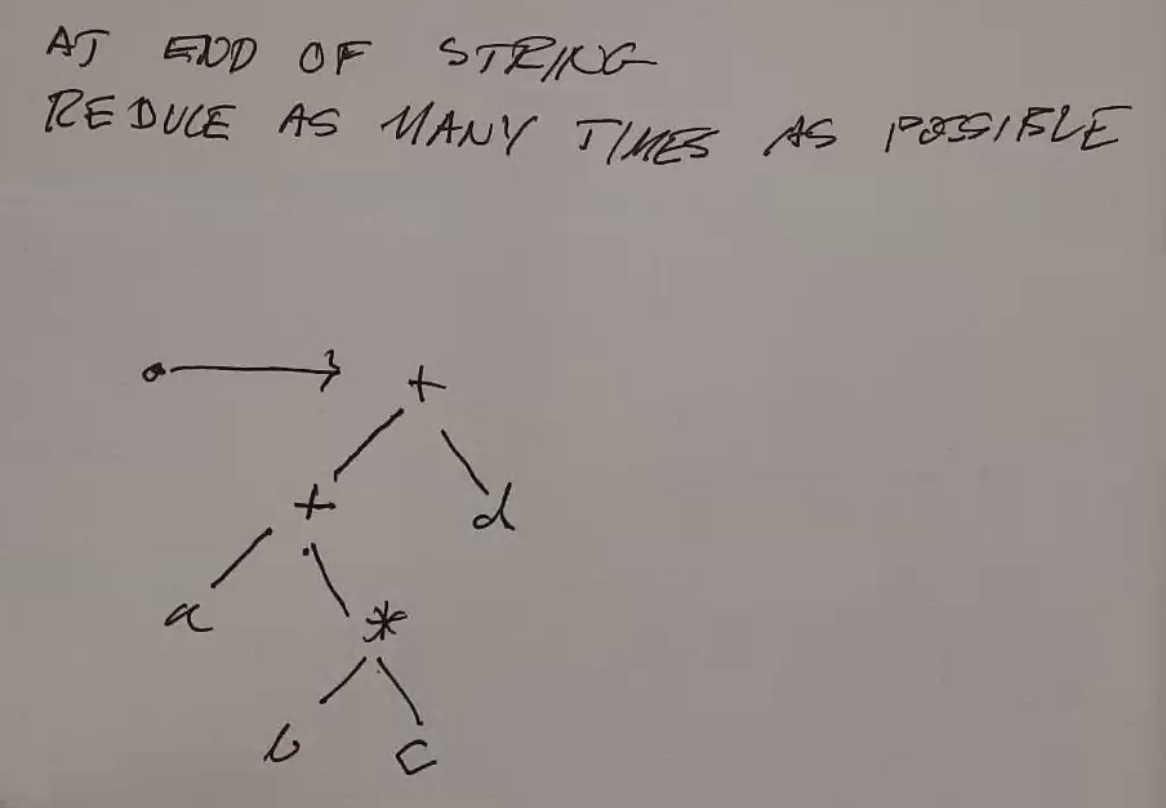 AT END OF STRING
REDUCE AS MANY TIMES AS POSSIBLE
+
+ d
a *
b c